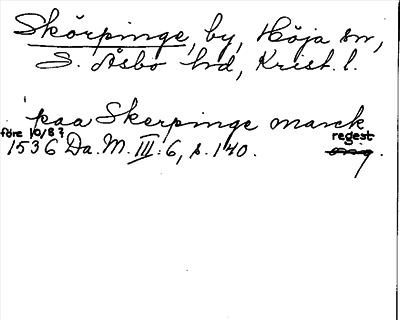 Skörpinge, by, Höja sn,
S. Åsbo hd, Krist. l.
paa Skerpinge marck
före 10/8 ?
regest
1536 Da. M. III:6, s. 140. orig.